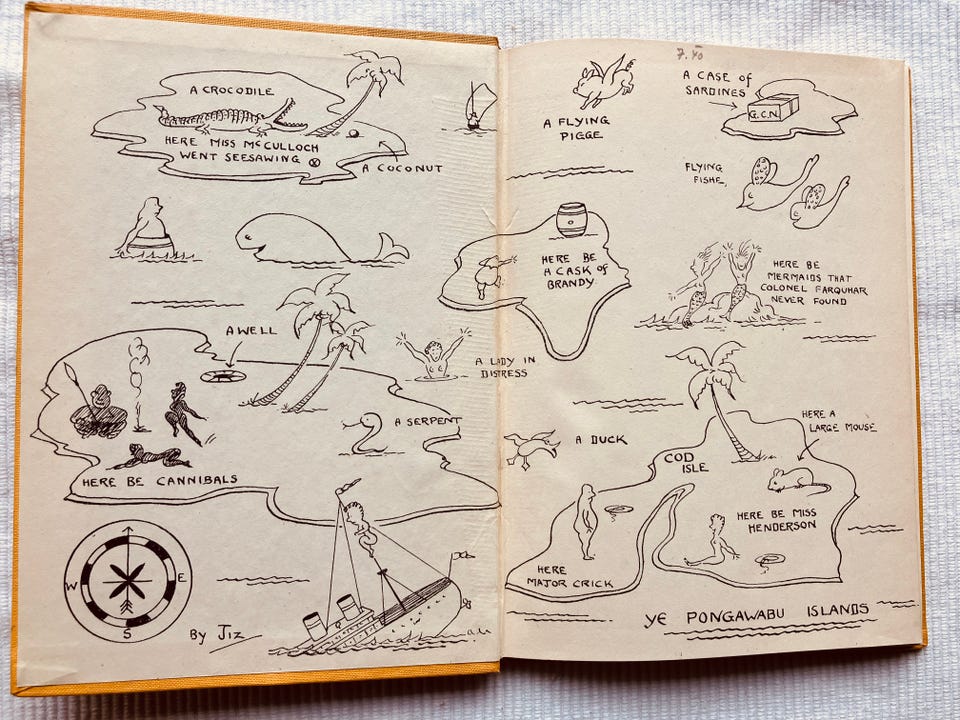 A CROCODILE
HERE MISS MCCULLOCH
WENT SEESAWING
A COCONUT
A WELL
A LADY IN
DISTRESS
A SERPENT
HERE BE CANNIBALS
W E
S
By Jiz
7.40
A FLYING
PIGGE
A CASE of
SARDINES
G.C.N.
FLYING
FISHE,
HERE BE
A CASK of
BRANDY
HERE BE
MERMAIDS THAT
COLONEL FARQUHAR
NEVER FOUND
A DUCK
COD
ISLE
HERE A
LARGE MOUSE
HERE BE MISS
HENDERSON
HERE
MAJOR CRICK
YE PONGAWABU ISLANDS